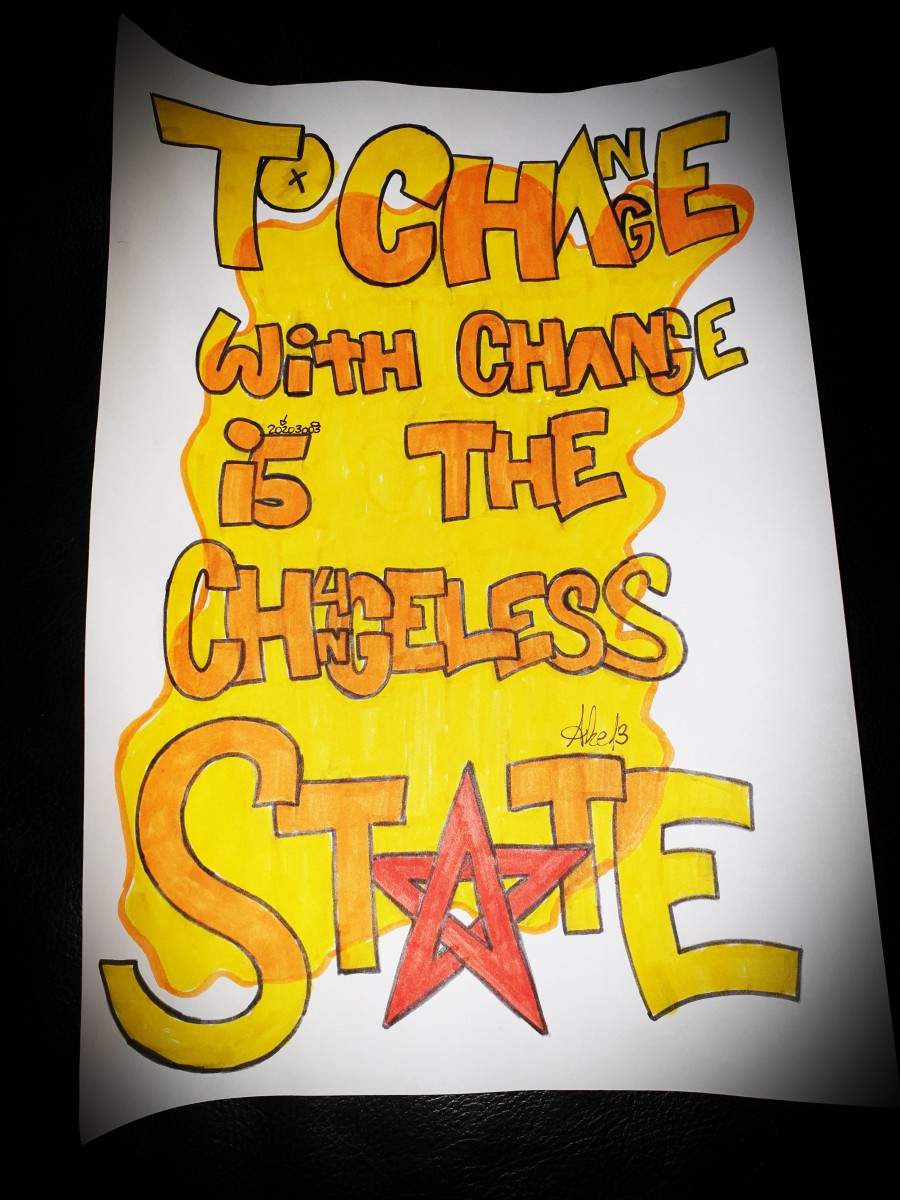 To CHANGE
WiTH CHANGE
20203003
iS THE
CHANGELESS
Ake13
STATE